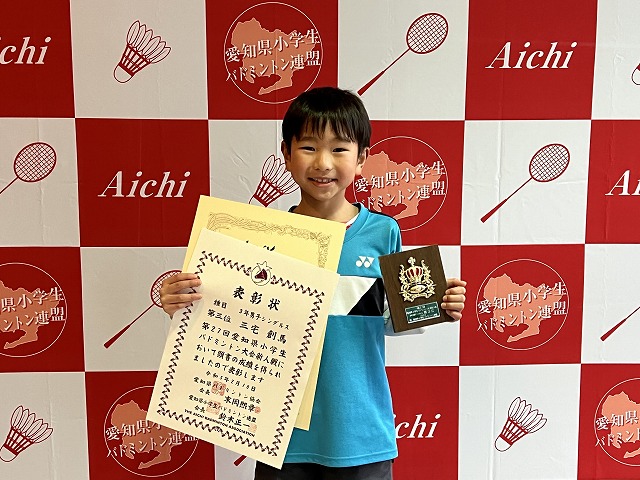 Aichi
愛知県小学生
バドミントン連盟
Aichi
Aichi
愛知県小学生
バドミントン連盟
Aichi
愛知県小学生
バドミントン連盟
愛知県小学生
バドミントン連盟
愛知県小学生
バドミントン連盟
Aichi
愛知県小学生
バドミントン連盟
YONEX
表彰状
種目 3年男子シングルス
第三位 三宅 創馬
第27回愛知県小学生
バドミントン大会新人戦に
おいて頭書の成績を得られ
ましたので表彰します
愛知県小学生バドミントン連盟
会長 鈴木正一